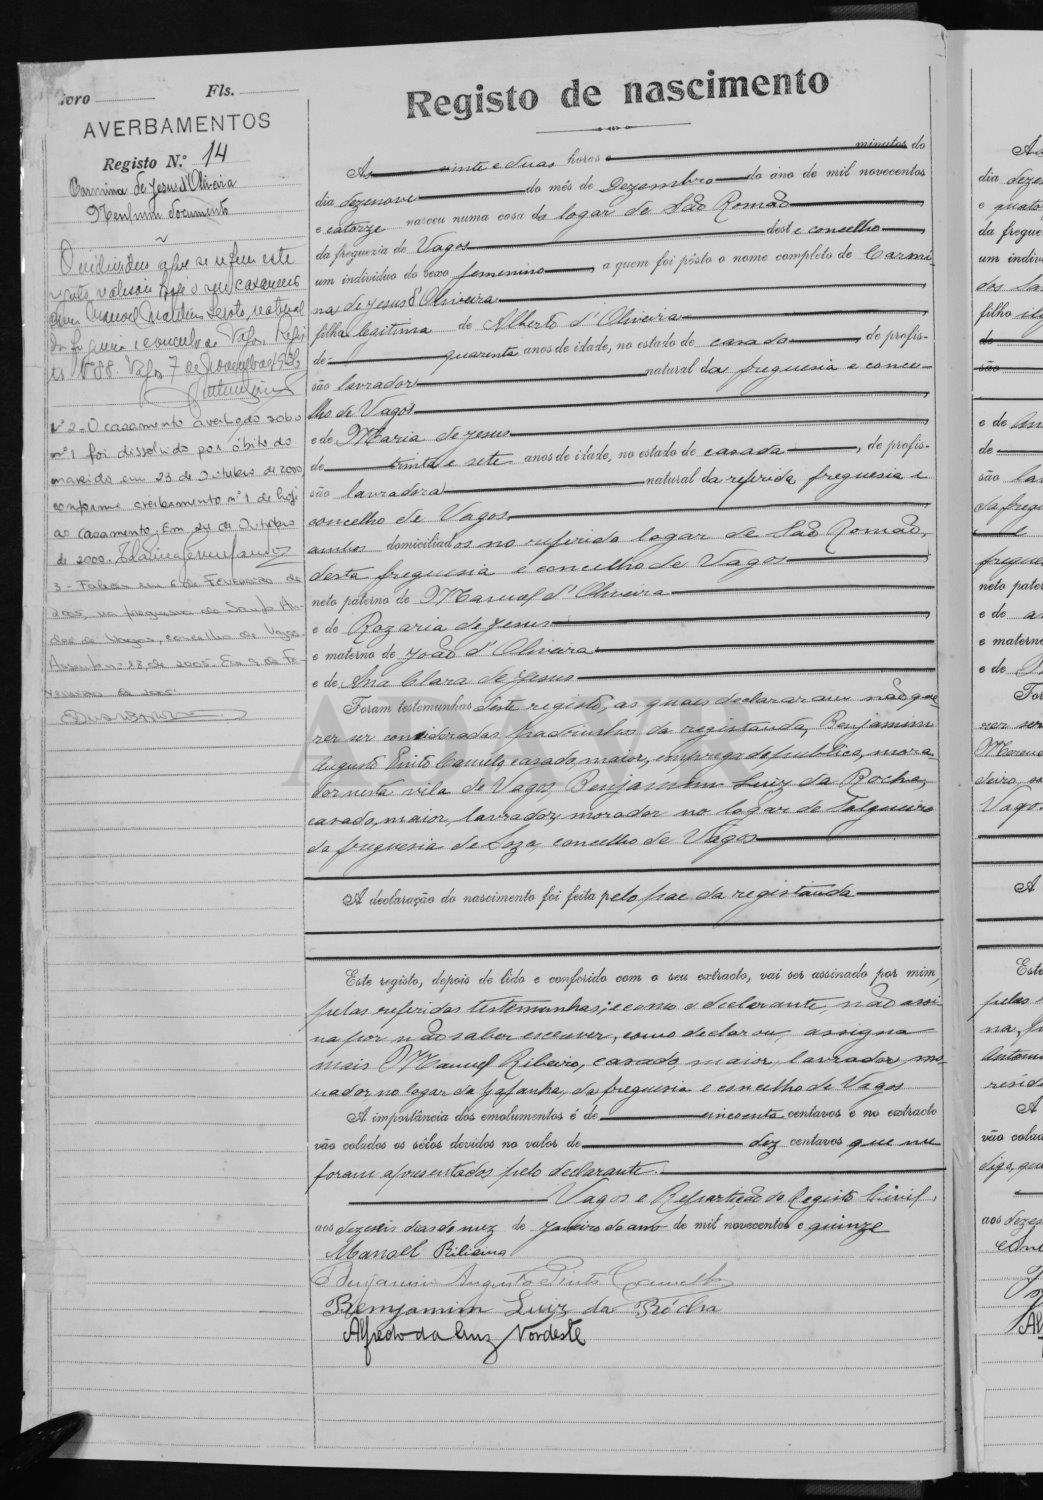 Fls.
AVERBAMENTOS
Registo N.º 14
Carmina de Jesus d'Oliveira
Nenhum documento
O individuo a que se refere este
registo realisou hoje o seu casamento
com Manoel Martins natural
da freguesia e concelho de Vagos. Regis-
to Nº 88. Vagos 7 de
Nº 2 - O casamento averbado sob o
nº 1 foi dissolvido por óbito do
marido em 23 de Outubro de 2000
conforme averbamento nº 1 de hoje
ao casamento. Em 24 de Outubro
de 2000.
3 - Faleceu em 6 de Fevereiro de
2005, na freguesia de Santo An-
dré de Vagos, concelho de Vagos.
Assento nº 28 de 2005. Em 9 de Fe-
vereiro de 2005.
Registo de nascimento
Às vinte e duas horas e minutos do
dia dezenove do mês de Dezembro do ano de mil novecentos
e catorze nasceu numa casa do logar de São Romão
da freguezia de Vagos deste concelho
um individuo do sexo femenino, a quem foi pôsto o nome completo de Carmi-
na de Jesus d'Oliveira
filha legitima de Alberto d'Oliveira
de quarenta anos de idade, no estado de casado, de profis-
são lavrador natural da freguesia e conce-
lho de Vagos
e de Maria de Jesus
de trinta e sete anos de idade, no estado de casada, de profis-
são lavradora natural da referida freguesia e
concelho de Vagos
ambos domiciliados no referido logar de São Romão,
desta freguesia e concelho de Vagos
neto paterno de Manuel d'Oliveira
e de Rozaria de Jesus
e materno de João d'Oliveira
e de Ana Clara de Jesus
Foram testemunhas deste registo, as quaes declararam não que-
rer ser consideradas padrinhos da registanda, Benjamim
Augusto Pinto Camelo, casado, maior, empregado publico, mora-
dor nesta vila de Vagos, Benjamim Luiz da Rocha,
casado, maior, lavrador, morador no logar de Salgueiro
da freguesia de Soza, concelho de Vagos
A declaração do nascimento foi feita pelo pae da registanda
Este registo, depois de lido e conferido com o seu extracto, vai ser assinado por mim,
pelas referidas testemunhas; e como o declarante, não assi-
na por não saber escrever, como declarou, assigna
mais Manuel Ribeiro, casado, maior, lavrador, mo-
rador no logar da Gafanha, da freguesia e concelho de Vagos
A importância dos emolumentos é de cincoenta centavos e no extracto
vão colados os sêlos devidos no valor de dez centavos que me
foram apresentados pelo declarante.
Vagos e Repartição do Registo Civil,
aos dezeseis dias do mez de Janeiro do ano de mil novecentos e quinze
Manoel Ribieiro
Benjamin Augusto Pinto Camello
Benjamim Luiz da Rócha
Alfredo da Cruz Nordeste
ADAVR